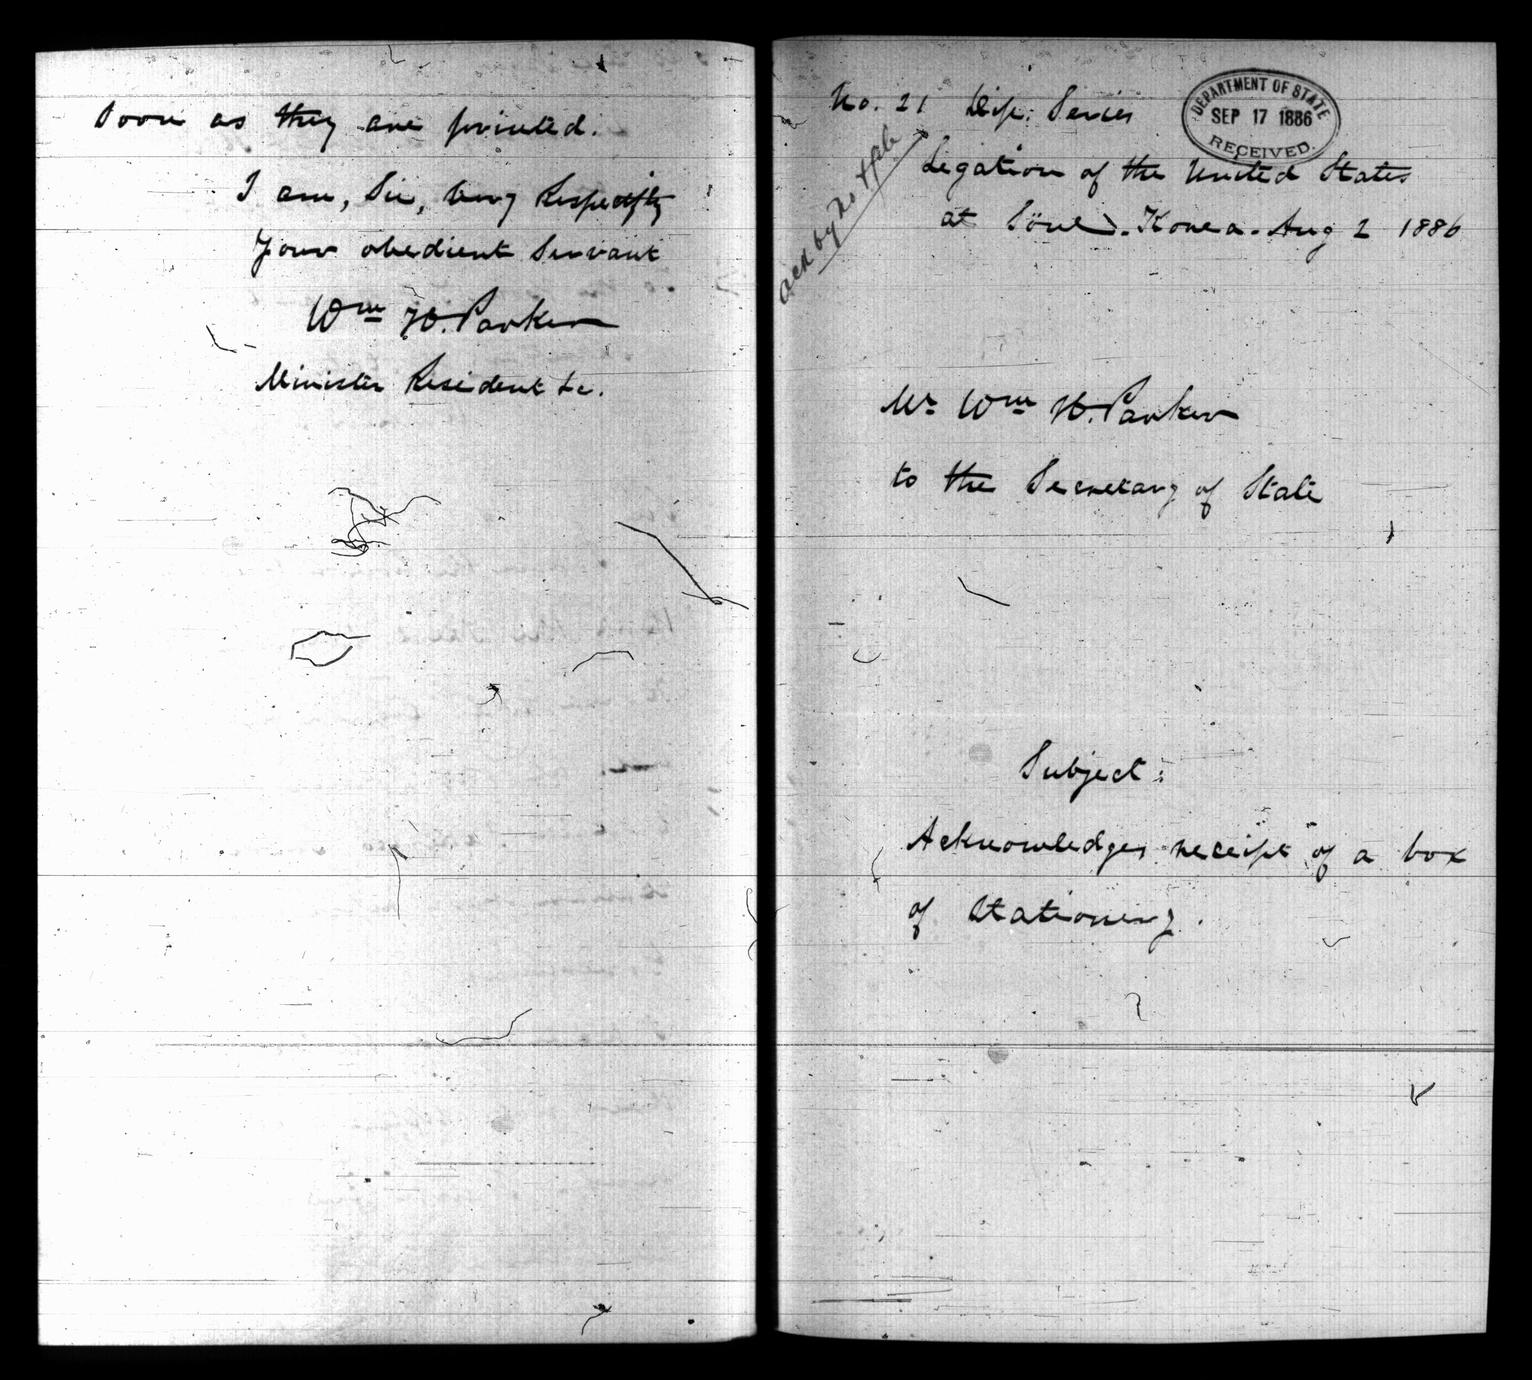 soon as they are printed.
I am, Sir, very Respectfully
Your obedient Servant
Wm H. Parker
Minister Resident &c.
No. 21 Dip. Series
DEPARTMENT OF STATE
SEP 17 1886
RECEIVED.
Legation of the United States
at Söul. Korea. Aug 2 1886
ack by No
Mr Wm H. Parker
to the Secretary of State
Subject:
Acknowledges receipt of a box
of Stationery.